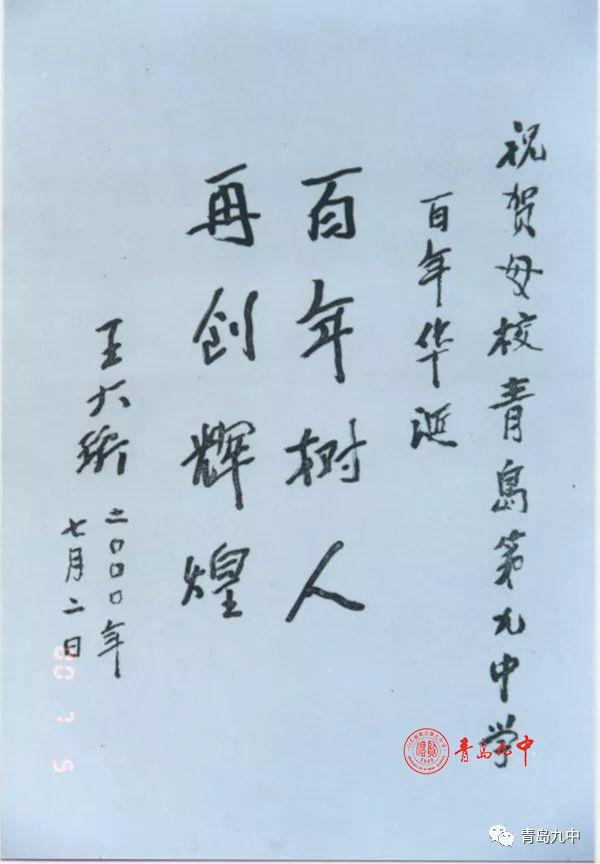 祝贺母校青岛第九中学
百年华诞
百年树人
再创辉煌
王大珩
二〇〇〇年
七月二日
00 7 5
青岛九中
1900
青岛九中